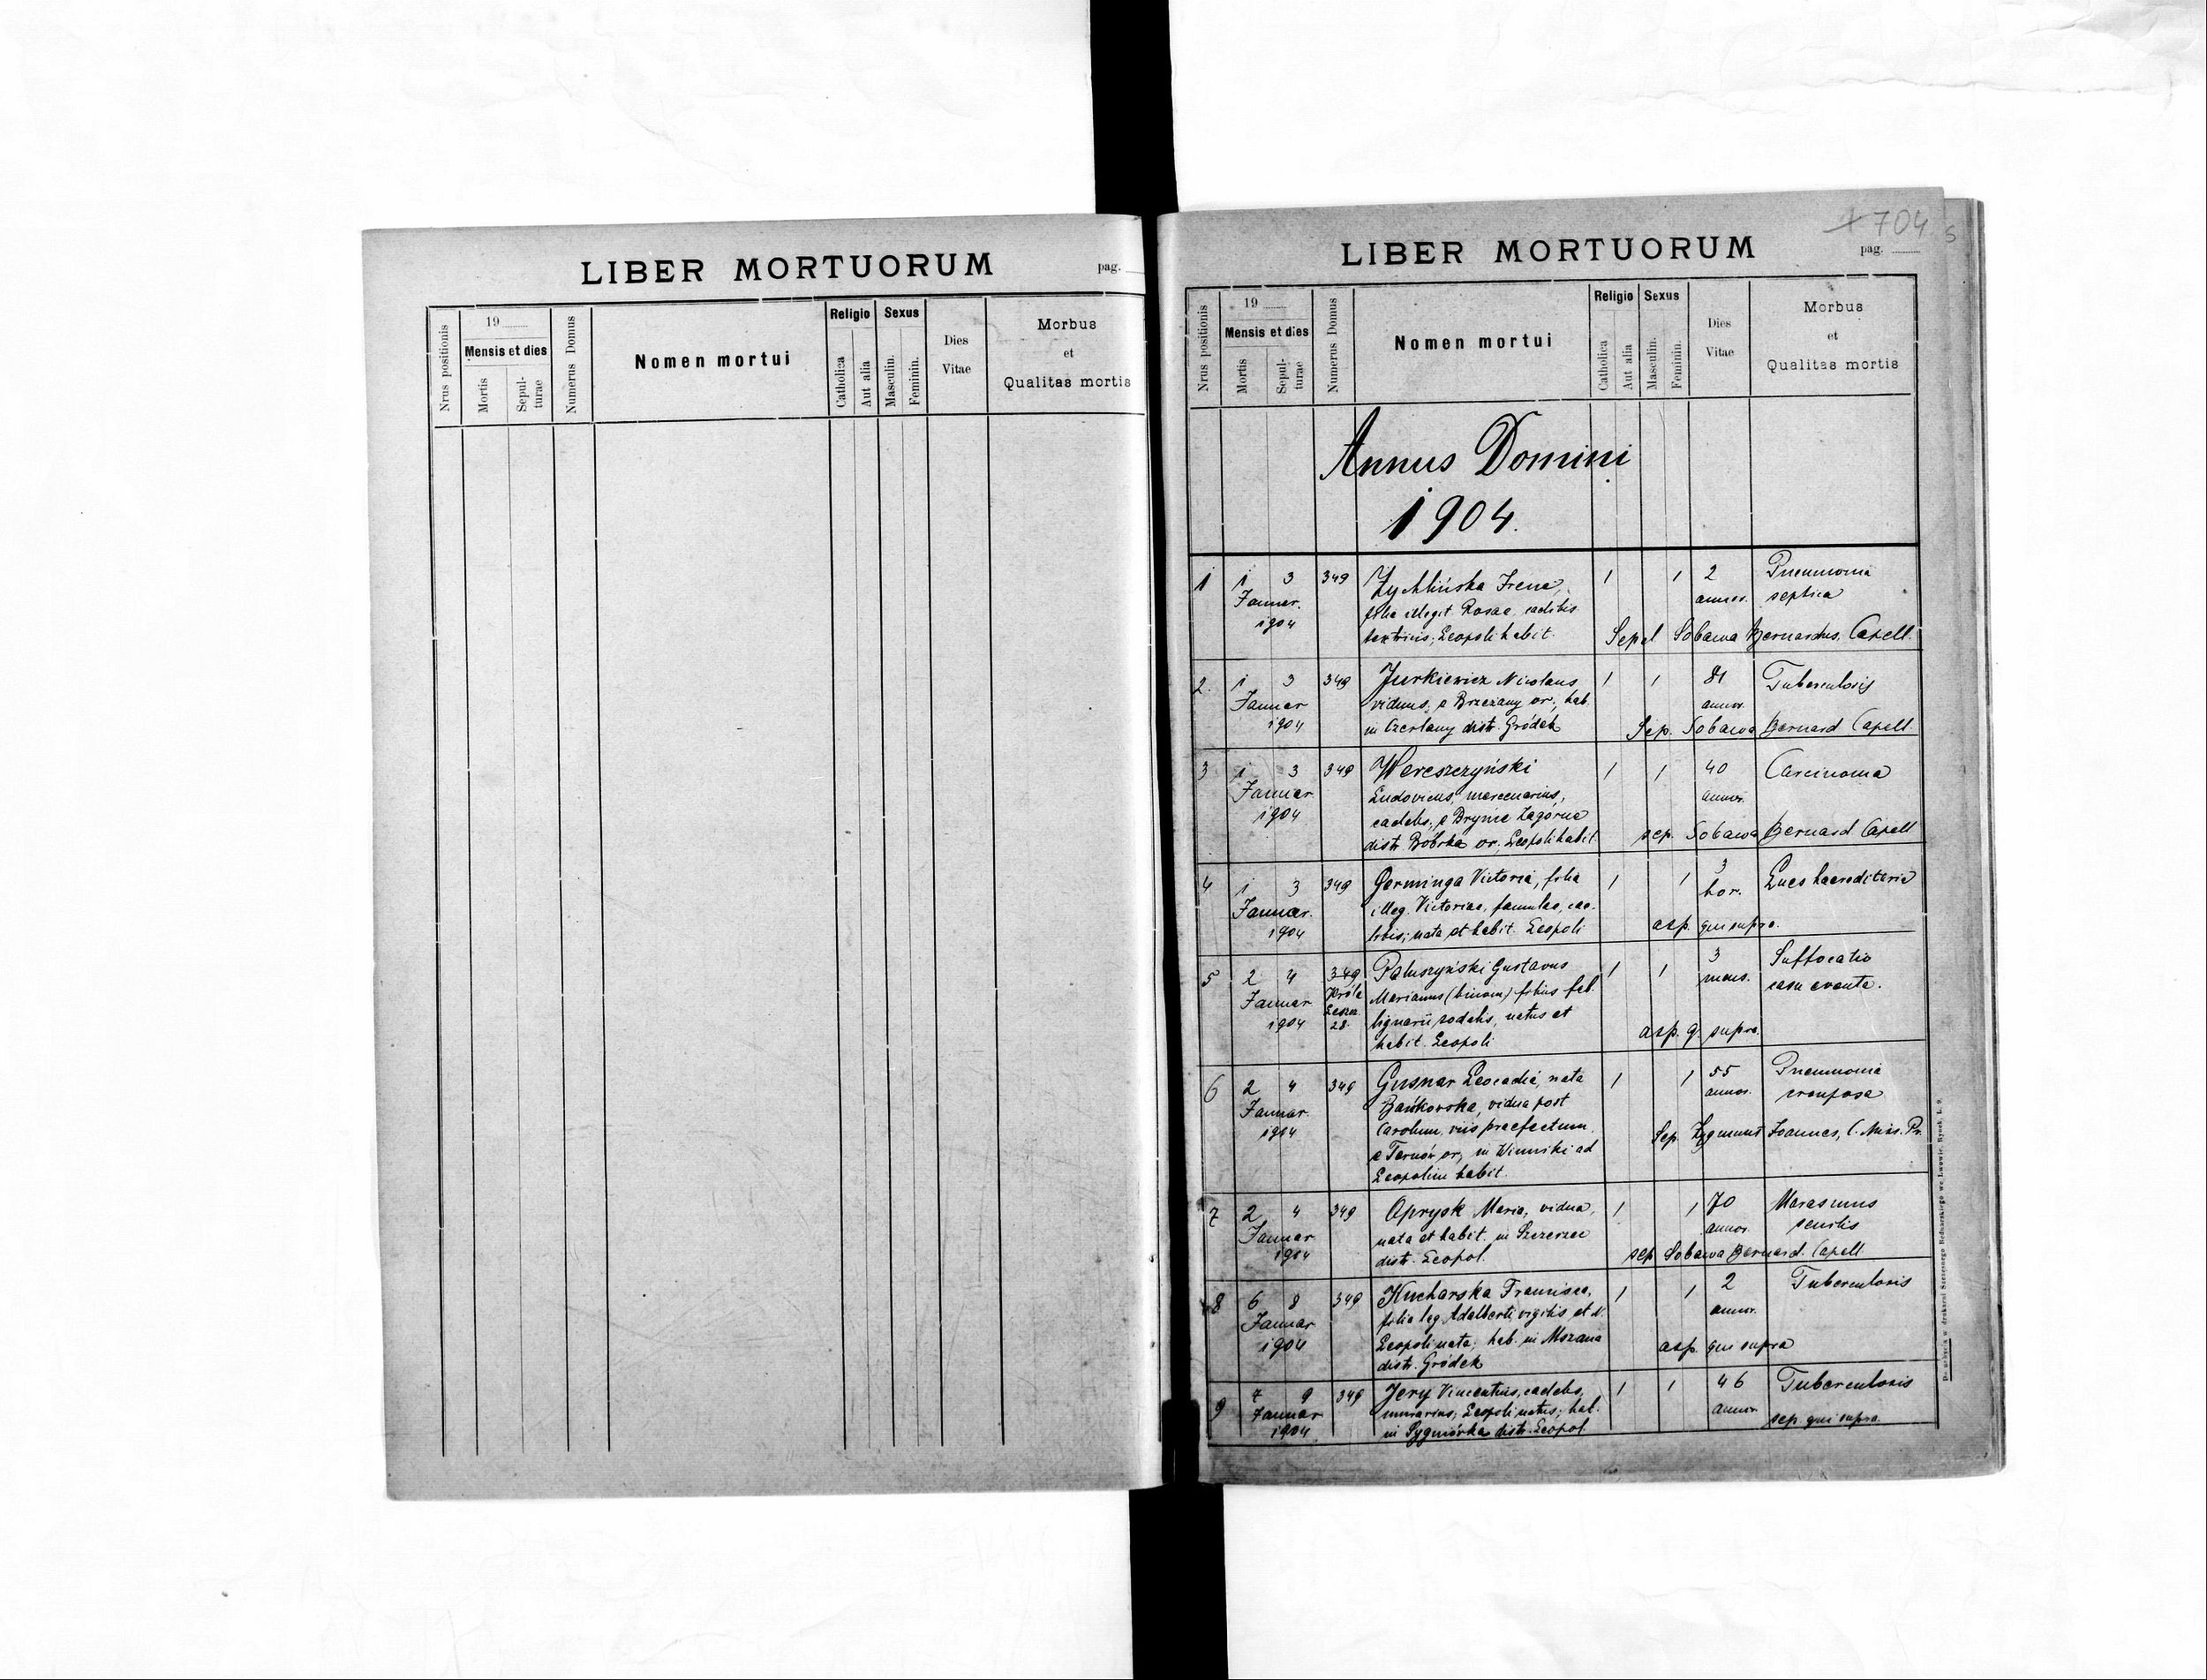 LIBER MORTUORUM
pag.
Nrus positionis
19
Mensis et dies
Mortis
Sepul-
turae
Numerus Domus
Nomen mortui
Religio
Catholica
Aut alia
Sexus
Masculin.
Feminin.
Dies
Vitae
Morbus
et
Qualitas mortis
704
LIBER MORTUORUM
pag.
Nrus positionis
19
Mensis et dies
Mortis
Sepul-
turae
Numerus Domus
Nomen mortui
Religio
Catholica
Aut alia
Sexus
Masculin.
Feminin.
Dies
Vitae
Morbus
et
Qualitas mortis
Annus Domini
1904.
1 1 3 349 Irena, 1 1 2 Pneumonia
Januar. filia illegit. Rosae, caelibis annor. septica
1904 Leopoli habit. Sepel Sobawa Bernardus, Capell.
2. 1 3 349 Jurkiewicz Nicolaus 1 1 81 Tuberculosis
Januar viduus, e Brzezany or., hab. annor.
1904 in Czerlany distr. Gródek Sep. Sobawa Bernard Capell.
3 1 3 349 Wereszczyński 1 1 40 Carcinoma
Januar Ludovicus, mercenarius, annor.
1904 caelebs, e Brynie Zagórne
distr. Bóbrka or., Leopoli habit. sep. Sobawa Bernard Capell
4 1 3 349 Germinga Victoria, filia 1 1 3 Lues haereditaria
Januar. illeg. Victoriae, famulae, cae- hor.
1904 libis; nata et habit. Leopoli asp. qui supra.
5 2 4 349 Paluszyński Gustavus 1 1 3 Suffocatio
Januar Króla Marianus (binom) filius mens. casu
1904 28. lignarii sodalis, natus et asp. q. supra
habit. Leopoli
6 2 4 349 Gusnar Leocadia, nata 1 1 55 Pneumonia
Januar. Bańkowska, vidua post annor. crouposa
1904 Carolum, viis praefectum,
e Tarnów or., in Winniki ad Sep. Zygmunt Joannes, C. Miss. Pr.
Leopolim habit.
7 2 4 349 Aprysk Maria, vidua, 1 1 70 Marasmus
Januar nata et habit. in Szczerzec annor. senilis
1904 distr. Leopol. sep Sobawa Bernard. Capell.
8 6 8 349 Kucharska Francisca, 1 1 2 Tuberculosis
Januar filia leg. Adalberti, vigilis et N. annor.
1904 Leopoli nata; hab. in Mszana asp. qui supra
distr. Gródek
9 7 9 349 Jery Vincentius, caelebs, 1 1 46 Tuberculosis
Januar murarius; Leopoli natus; hab. annor.
1904 in Sygniówka distr. Leopol. sep. qui supra.